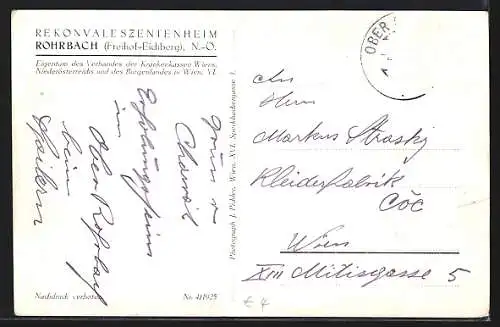 REKONVALESZENTENHEIM
ROHRBACH (Freihof-Eichberg), N.-Ö.
Eigentum des Verbandes der Krankenkassen Wiens,
Niederösterreichs und des Burgenlandes in Wien, VI.
Ober Rohrbach
beim
Nachdruck verboten
No. 4/1925
Photograph J. Pichler, Wien, XVI. Speckbachergasse 1.
OBER
An
Herrn
Markus Strasky
Kleiderfabrik
Wien
XIII Mitisgasse 5
€ 4